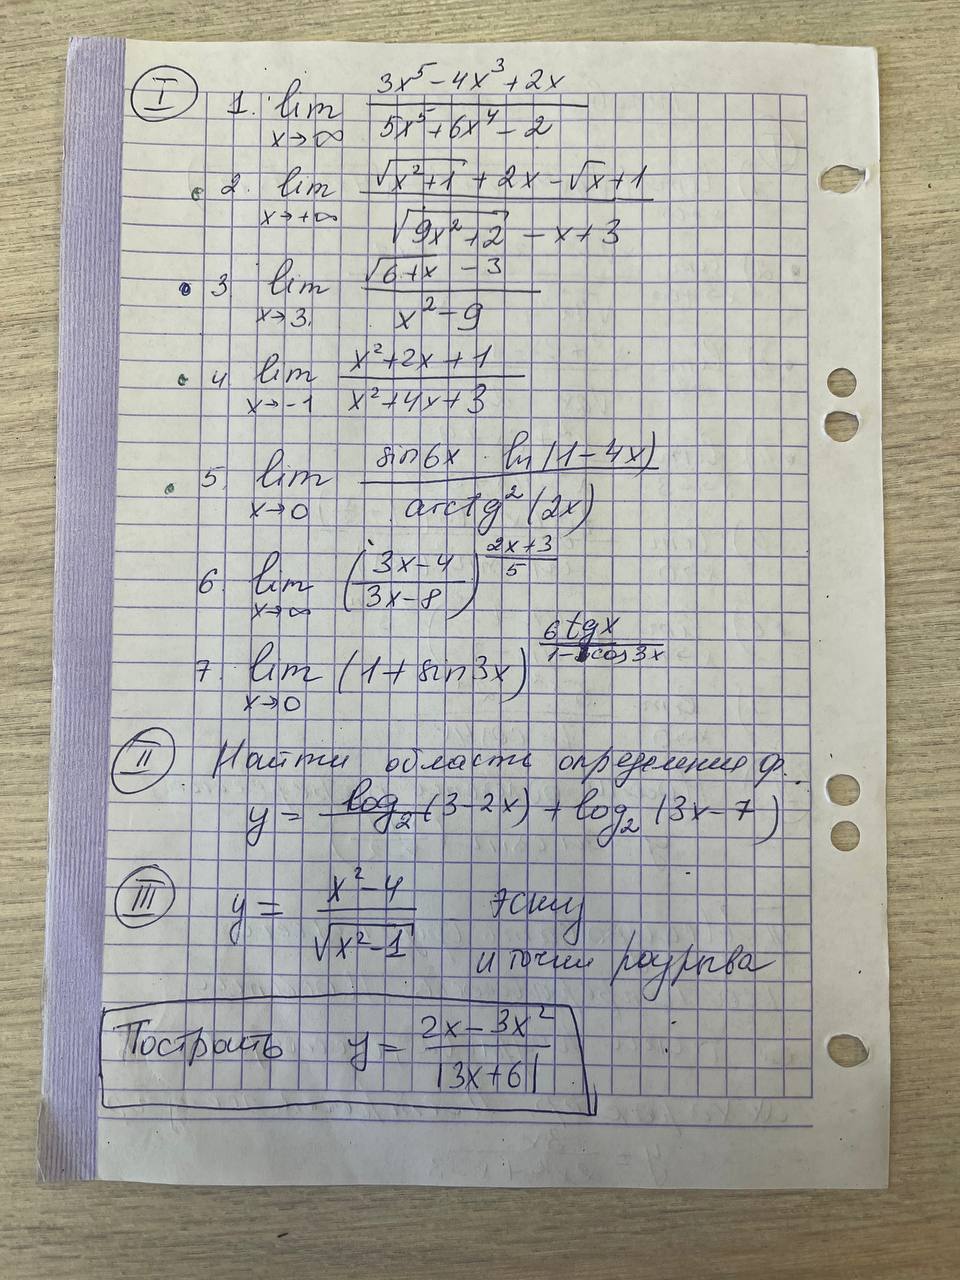 I
1. lim x→∞ (3x⁵ − 4x³ + 2x) / (5x⁵ + 6x⁴ − 2)
2. lim x→+∞ (√(x²+1) + 2x − √x + 1) / (√(9x²+2) − x + 3)
3 lim x→3. (√(6+x) − 3) / (x² − 9)
4 lim x→−1 (x² + 2x + 1) / (x² + 4x + 3)
5. lim x→0 (sin6x · ln(1−4x)) / (arctg²(2x))
6. lim x→∞ ((3x−4) / (3x−8))^((2x+3)/5)
7. lim x→0 (1 + sin3x)^((6tgx)/(1−cos3x))
II Найти область определения ф.
y = log₂(3−2x) + log₂(3x−7)
III y = (x²−4) / √(x²−1) Эскиз
и точки разрыва
Построить y = (2x − 3x²) / |3x+6|